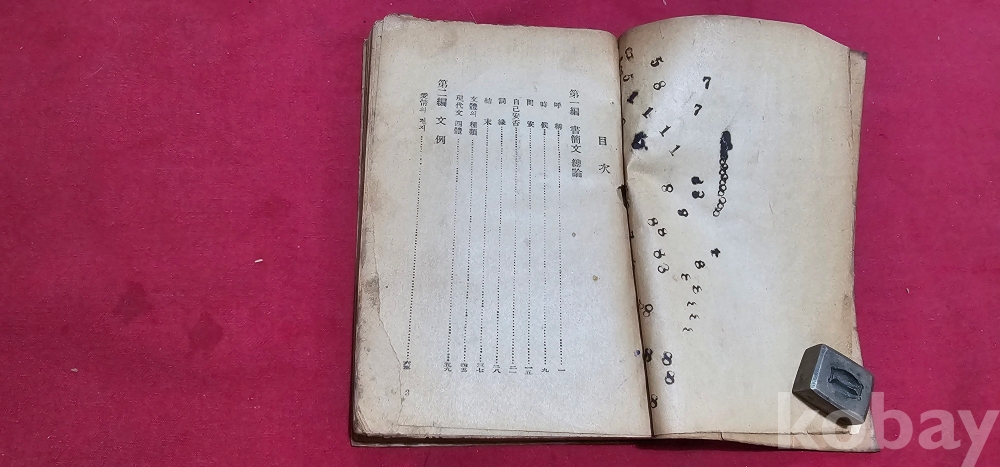 目次
第一編 書簡文 總論
呼稱 一
時候 九
問安 一五
自己安否 二一
詞緣 二八
結末 三七
文體의 種類
現代文 四體 五九
第二編 文例
愛情의 편지
3
7
7
5
8
1
1
1
8
kobay